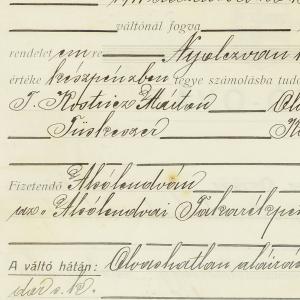 váltónál fogva
rendelet em re Nyolczvan
értéke készpénzben tegye számolásba tudo
T. Kostricz Márton
Tüskeszer
Fizetendő Alsólendván
az. Alsólendvai Takarékpén
A váltó hátán: Olvashatlan aláírá
dar s. k.